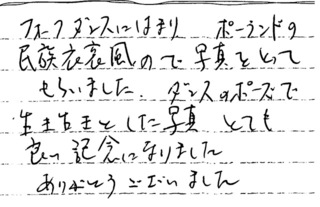 フォークダンスにはまり ポーランドの
民族衣裳風ので写真をとって
もらいました. ダンスのポーズで
生き生きとした写真 とても
良い記念になりました
ありがとうございました